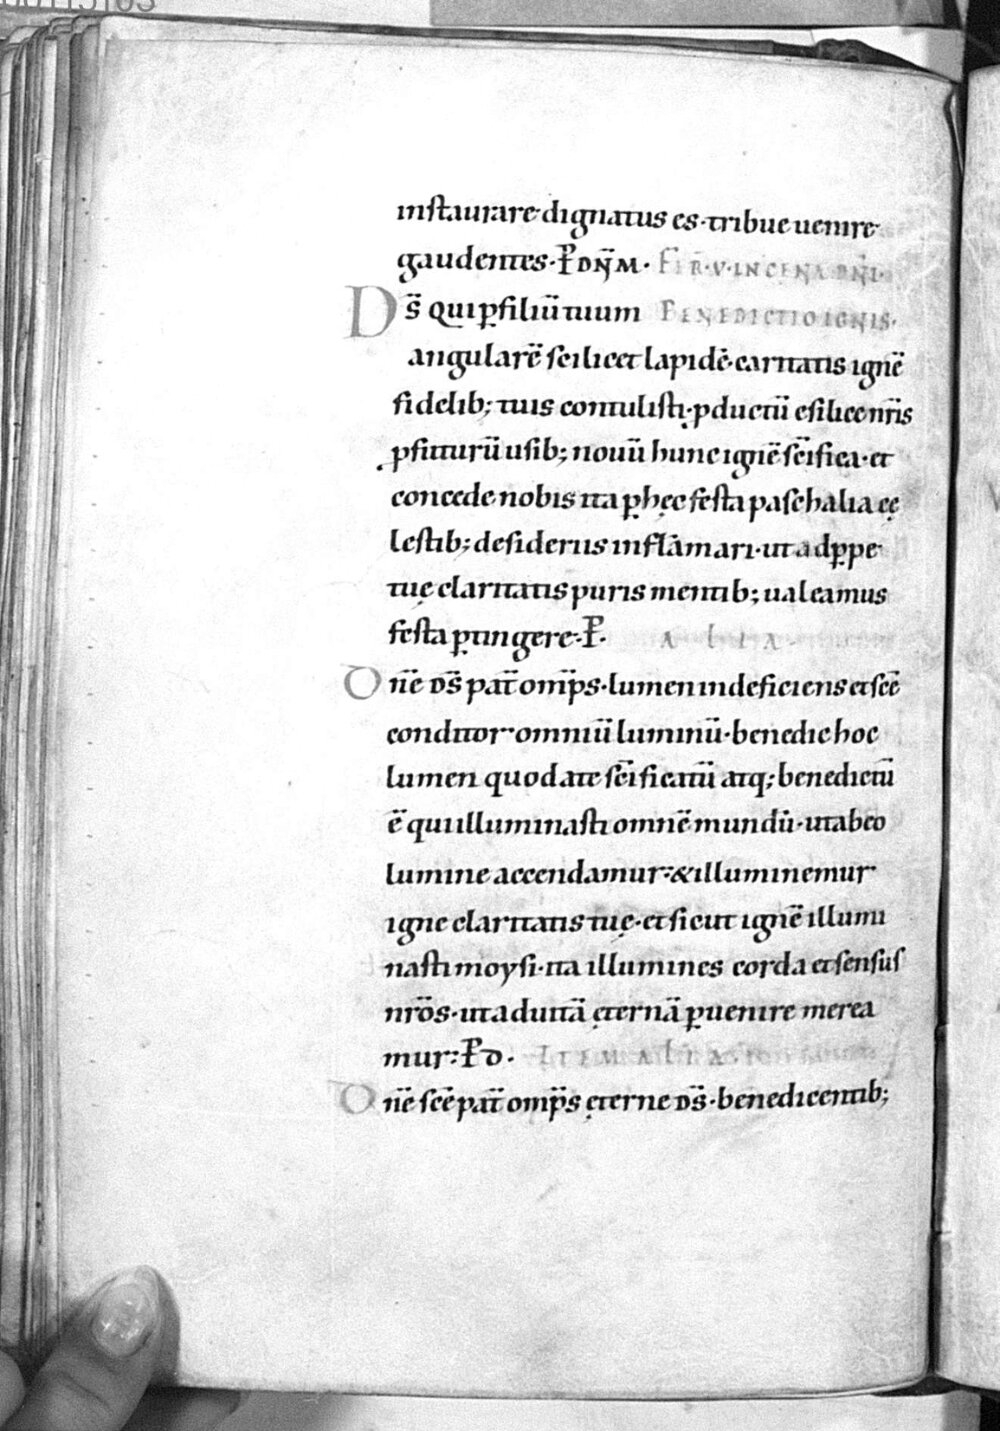 instaurare dignatus es· tribue uenire
gaudentes· P̄ DN̄M· FER̄·V· IN CENA DN̄I·
DS̄ qui ꝑ filiū tuum BENEDICTIO IGNIS·
angularē scilicet lapidē· caritatis ignē
fidelib; tuis contulisti· ꝓductū e silice nr̄is
ꝓfuturū usib; nouū hunc ignē scīfica· et
concede nobis ita ꝑ hęc festa paschalia cę
lestib; desideriis inflāmari· ut ad ꝑpe
tuę claritatis puris mentib; ualeamus
festa ꝑtingere· P̄· ALIA·
Dn̄e DS̄ pat̄ omīps· lumen indeficiens et scē
conditor omniū luminū· benedic hoc
lumen quod a te scīficatū atq; benedictū
ē qui illuminasti omnē mundū· ut ab eo
lumine accendamur· & illuminemur
igne claritatis tuę· et sicut ignē illumi
nasti moysi· ita illumines corda et sensus
nr̄os· ut ad uitā ęternā ꝑuenire merea
mur: P̄ D· ITEM ALIA·
Dn̄e scē pat̄ omīps ęterne DS̄· benedicentib;